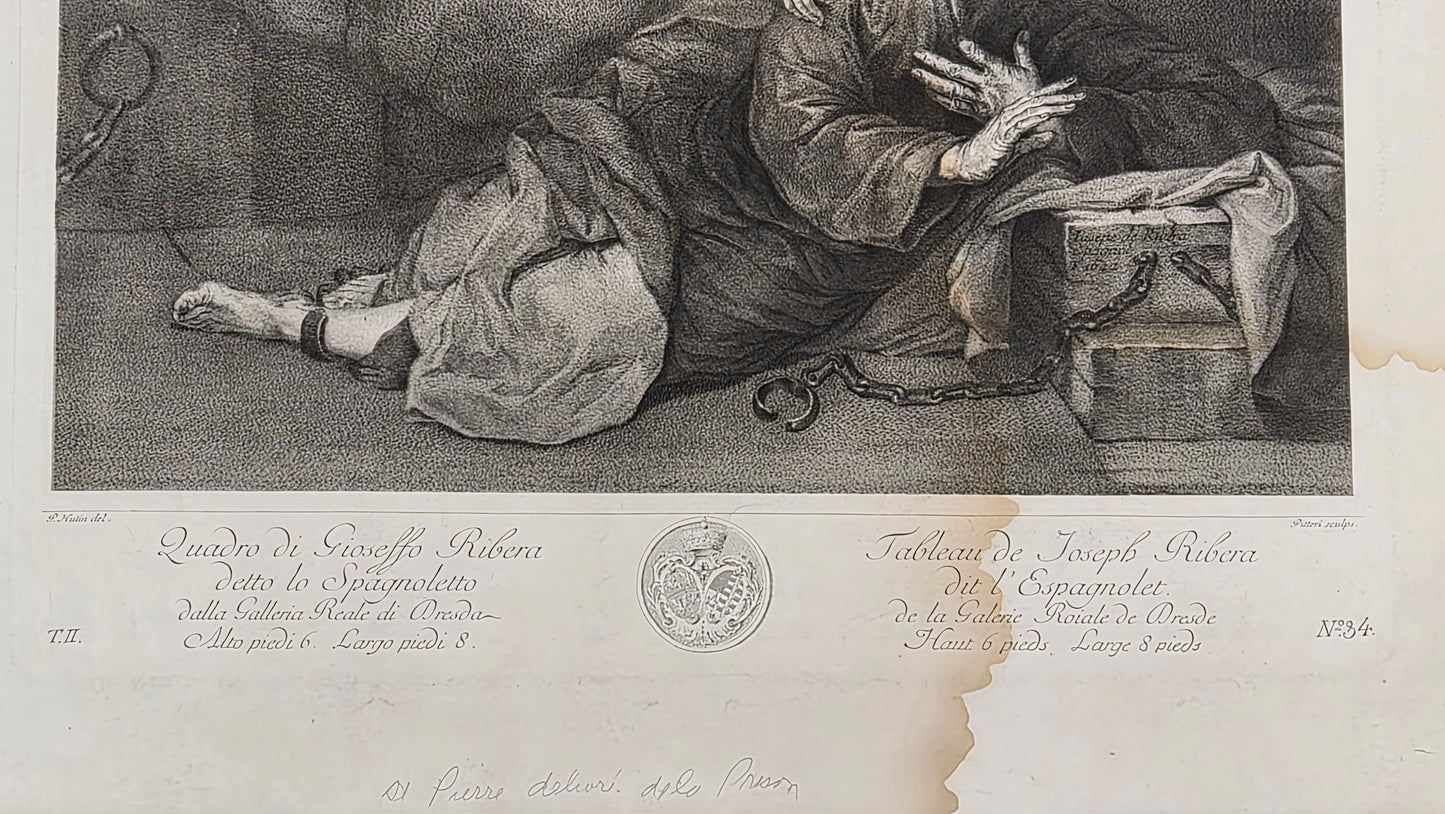 Jusepe de Ribera
P. Hutin del.
Pitteri sculps.
Quadro di Gioseffo Ribera
detto lo Spagnoletto
dalla Galleria Reale di Dresda
Alto piedi 6. Largo piedi 8.
T.II.
Tableau de Joseph Ribera
dit l'Espagnolet.
de la Galerie Roiale de Dresde
Haut 6 pieds. Large 8 pieds
Nº.34.
St Pierre délivré de la Prison